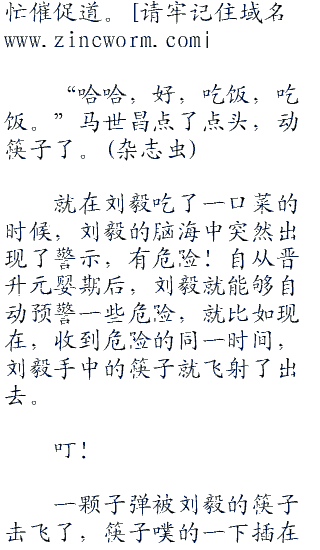 忙催促道。[请牢记住域名
www.zincworm.com|
“哈哈，好，吃饭，吃
饭。”马世昌点了点头，动
筷子了。(杂志虫)
就在刘毅吃了一口菜的
时候，刘毅的脑海中突然出
现了警示，有危险！自从晋
升元婴期后，刘毅就能够自
动预警一些危险，就比如现
在，收到危险的同一时间，
刘毅手中的筷子就飞射了出
去。
叮！
一颗子弹被刘毅的筷子
击飞了，筷子噗的一下插在